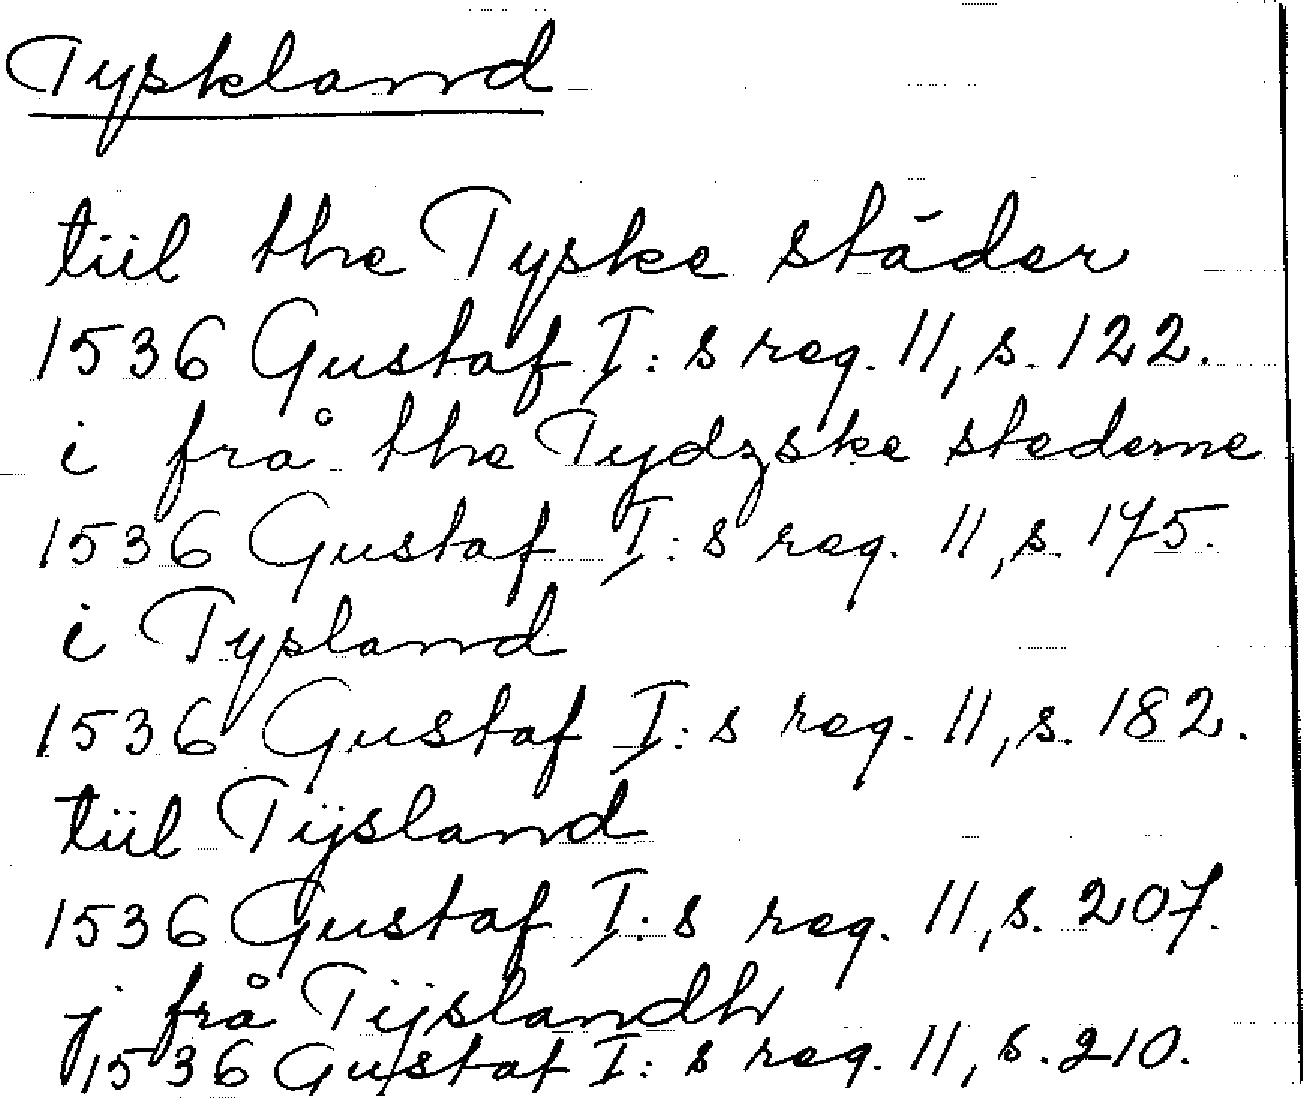 Tyskland
tiil the Tyske städer
1536 Gustaf I:s reg. 11, s. 122.
i frå the Tydzske stederne
1536 Gustaf I:s reg. 11, s. 175.
i Tysland
1536 Gustaf I:s reg. 11, s. 182.
tiil Tijsland
1536 Gustaf I:s reg. 11, s. 207.
j frå Tijslandh
1536 Gustaf I:s reg. 11, s. 210.